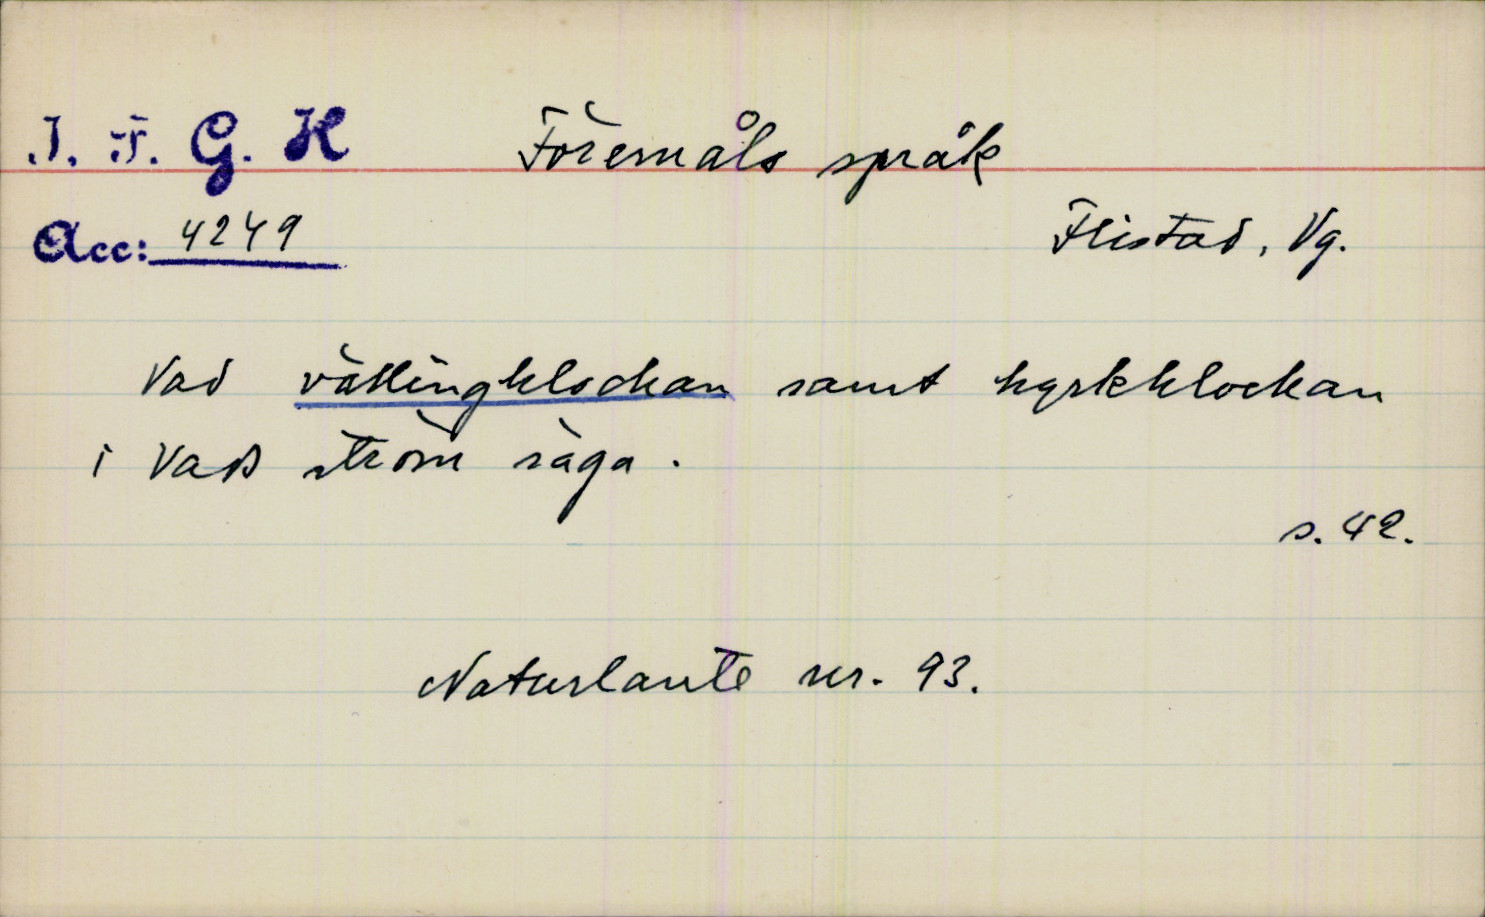 I. F. G. H Föremåls språk
Acc: 4249 Flistad, Vg.
Vad vällingklockan samt kyrkklockan
i Vad ström säga.
s. 42.
Naturlaute nr. 93.